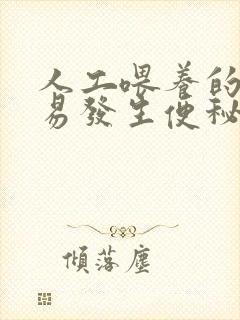 人工喂養的
易發生便秘
傾落塵